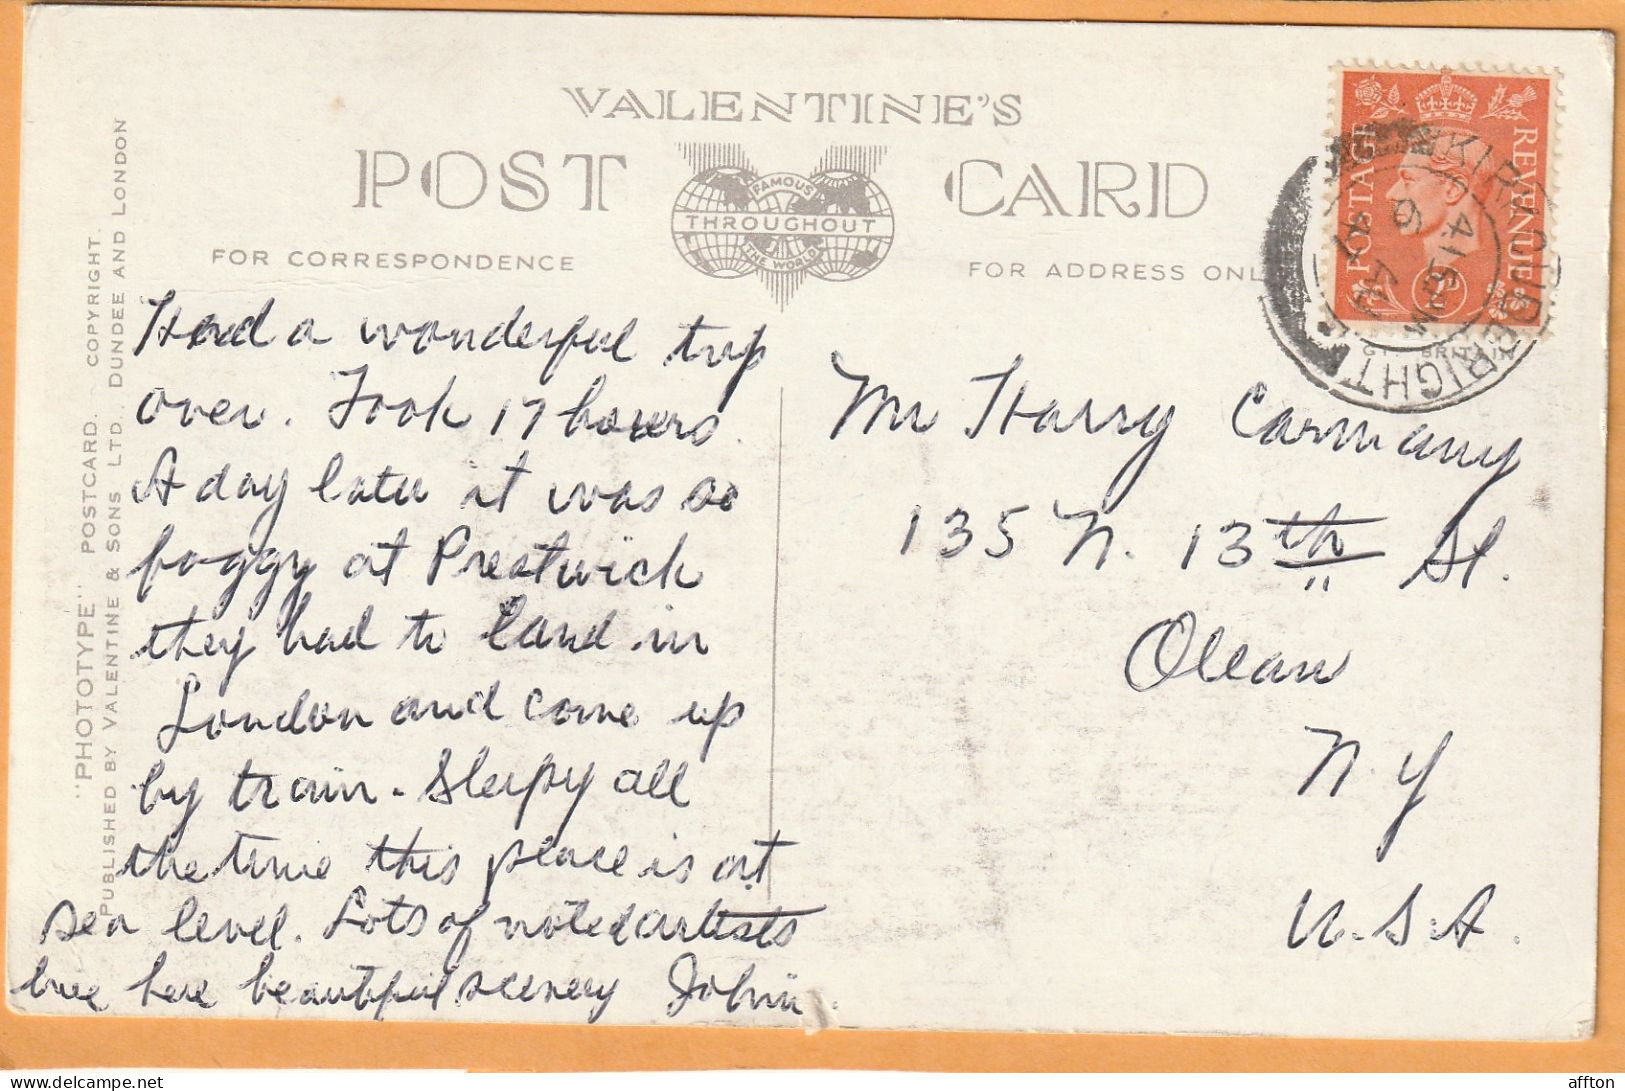 VALENTINE'S
POST CARD
FAMOUS
THROUGHOUT
THE WORLD
FOR CORRESPONDENCE
FOR ADDRESS ONL
"PHOTOTYPE" POSTCARD. COPYRIGHT.
PUBLISHED BY VALENTINE & SONS LTD., DUNDEE AND LONDON
Had a wonderful trip
over. Took 17 hours.
A day later it was so
foggy at Prestwick
they had to land in
London and come up
by train. Sleepy all
the time this place is at
sea level. Lots of noted artists
live here beautiful scenery
POSTAGE REVENUE
KIRKCUDBRIGHT
GT. BRITAIN
Mr Harry Carmany
135 N. 13th St.
Olean
N.Y
U.S.A.
affton